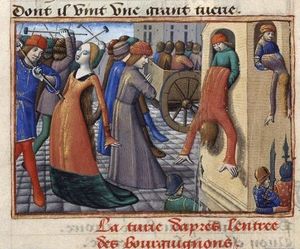 Dont il vint une grant tuerie.
La turie dapres lentree
des bourguignons